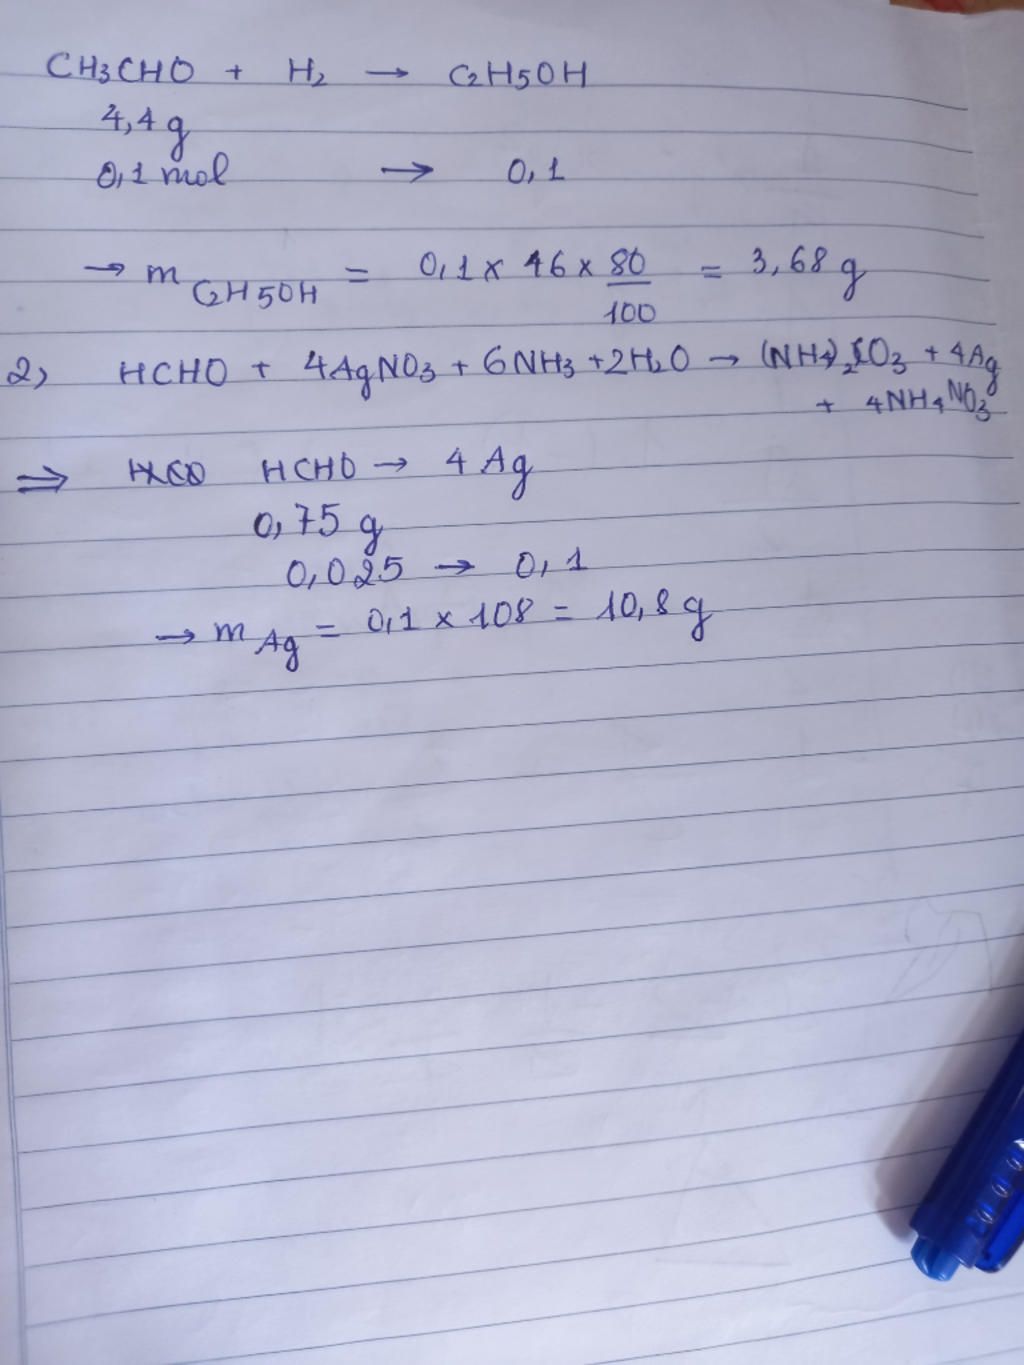 CH3CHO + H2 → C2H5OH
4,4 g
0,1 mol → 0,1
→ m C2H5OH = 0,1 x 46 x 80/100 = 3,68 g
2) HCHO + 4AgNO3 + 6NH3 + 2H2O → (NH4)2CO3 + 4Ag
+ 4NH4NO3
⇒ HCHO → 4 Ag
0,75 g
0,025 → 0,1
→ m Ag = 0,1 x 108 = 10,8 g